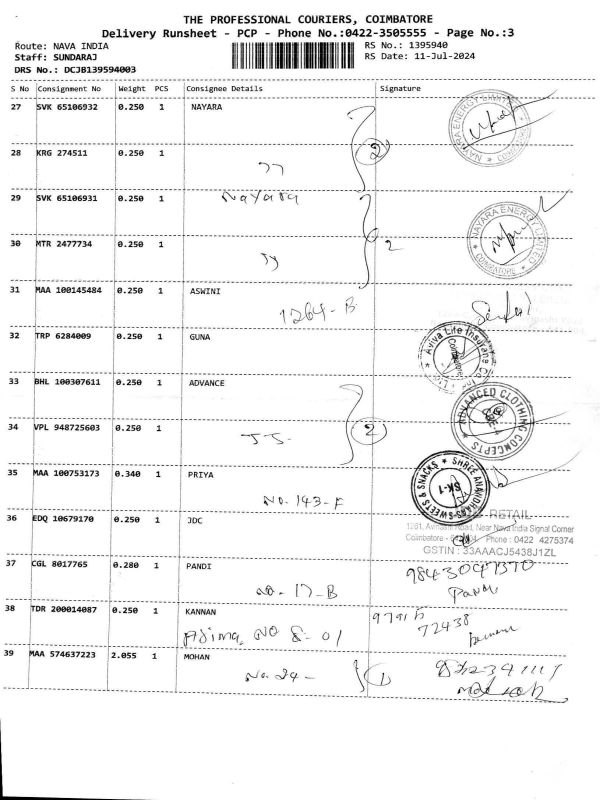 THE PROFESSIONAL COURIERS, COIMBATORE
Delivery Runsheet - PCP - Phone No.:0422-3505555 - Page No.:3
Route: NAVA INDIA RS No.: 1395940
Staff: SUNDARAJ RS Date: 11-Jul-2024
DRS No.: DCJB139594003
S No Consignment No Weight PCS Consignee Details Signature
27 SVK 65106932 0.250 1 NAYARA
28 KRG 274511 0.250 1
2
29 SVK 65106931 0.250 1
Nayara
NAYARA ENERGY LIMITED * COIMBATORE *
30 MTR 2477734 0.250 1
2
31 MAA 100145484 0.250 1 ASWINI
1264-B
32 TRP 6284009 0.250 1 GUNA
Aviva Life Insurance Co
Coimbatore
33 BHL 100307611 0.250 1 ADVANCE
ADVANCED CLOTHING CONCEPTS
34 VPL 948725603 0.250 1
2
35 MAA 100753173 0.340 1 PRIYA
No. 143-F
SHREE ANANDHAAS SWEETS & SNACKS
SK-1
36 EDQ 10679170 0.250 1 JDC
RETAIL
1261, Avinashi Road, Near Nava India Signal Corner
Coimbatore - Phone : 0422 4275374
GSTIN : 33AAACJ5438J1ZL
37 CGL 8017765 0.280 1 PANDI
No. 17-B
9843047370
Pandi
38 TDR 200014087 0.250 1 KANNAN
No 8-01
72438
39 MAA 574637223 2.055 1 MOHAN
No. 24 -
1